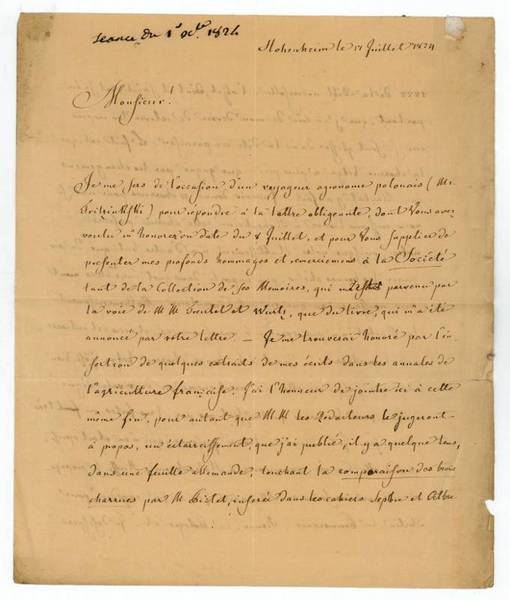 Seance du 1er 8bre 1824
Hohenheim le 17 Juillet 1824
Monsieur!
Je me sers de l'occasion d'un voyageur agronome polonais (Mr.
) pour répondre à la lettre obligeante, dont Vous avez
voulu m'honorer en date du 8 Juillet, et pour Vous supplier de
presenter mes profonds hommages et remercimens à la Société
tant de la Collection de ses Memoires, qui m'est parvenu par
la voie de M M. Treutel et Wurtz, que du livre, qui m'a été
annoncé par votre lettre — Je me trouverai honoré par l'in-
sertion de quelques extraits de mes écrits dans les annales de
l'agriculture française. J'ai l'honneur de joindre ici à cette
même fin, pour autant que M.M. les Redacteurs le jugeront
à propos, un éclaircissement, que j'ai publié, il y a quelque tems,
dans une feuille allemande, touchant la comparaison des trois
charrues par M. Bistel, inserée dans les cahiers Septbre et Octbre